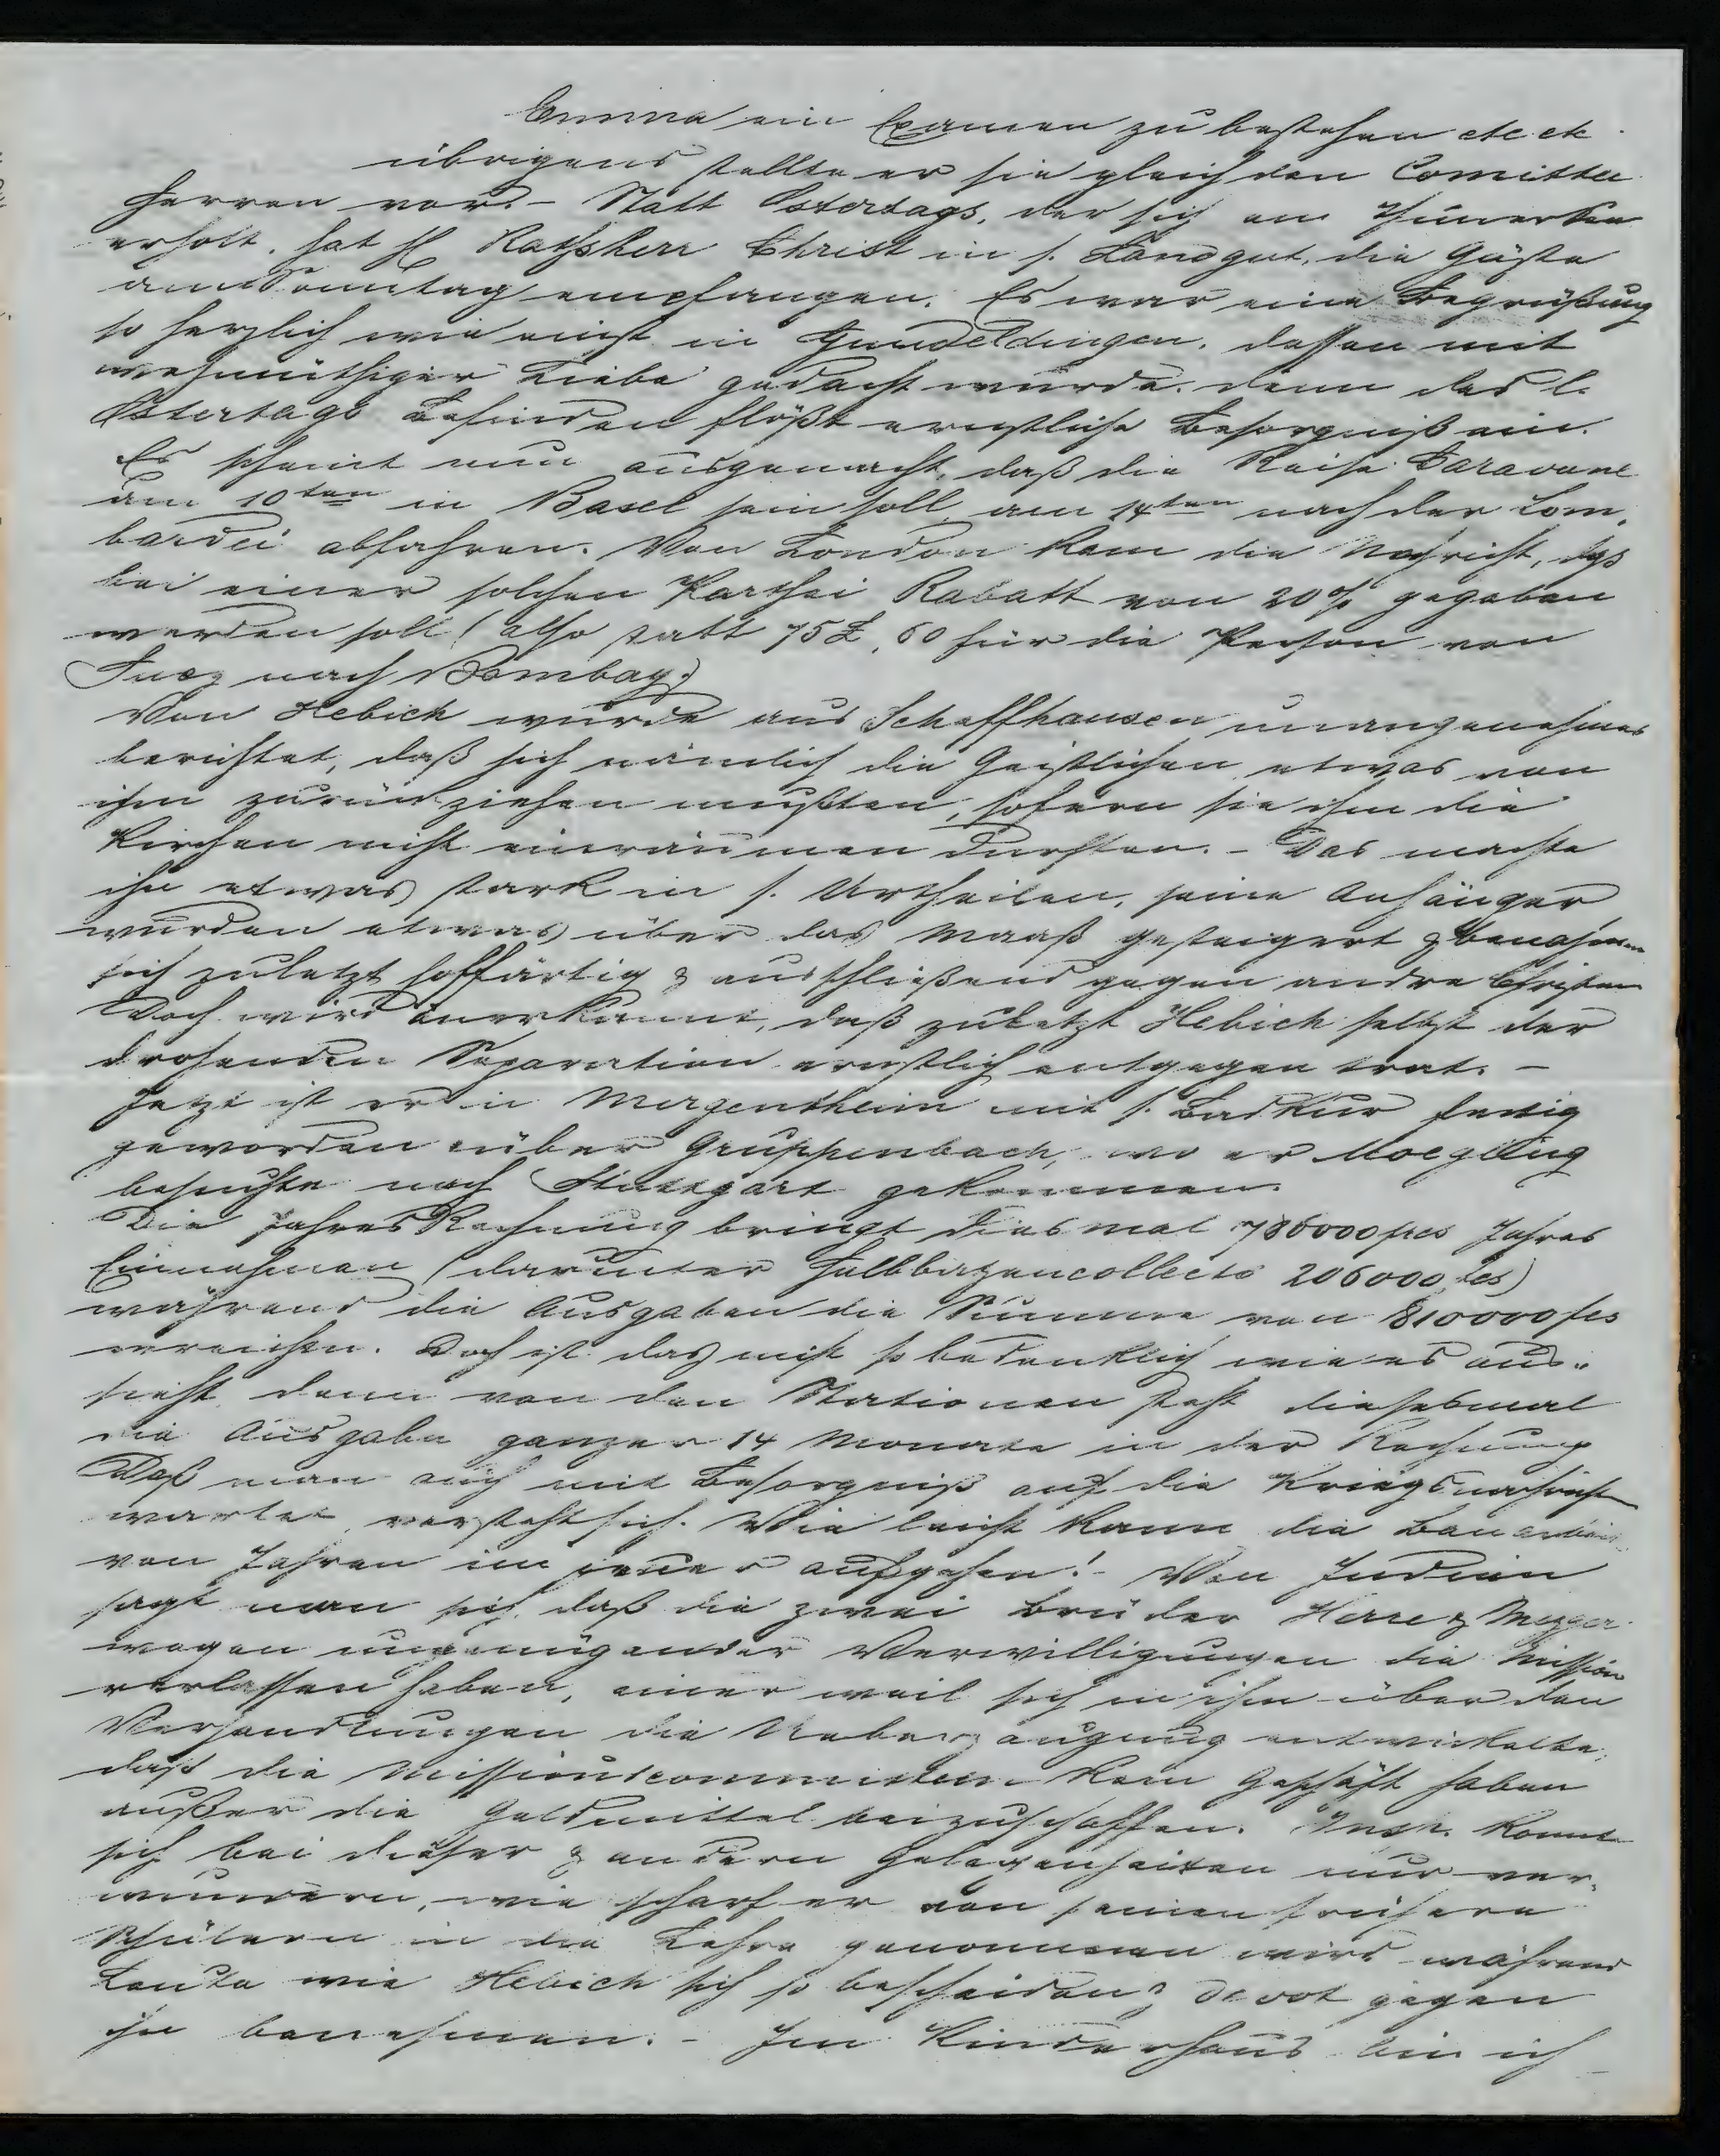 Emma ein Examen zu bestehen etc etc.
übrigens stellte er sie gleich den Comittee
Herren vor. - Statt Ostertags, der sich am Thunersee
erholt, hat H Rathsherr Christ in s. Landgut, die Gäste
am Sonntag empfangen. Es war eine Begrüßung
so herzlich wie einst in Gundeldingen, dessen mit
wehmüthiger Liebe gedacht wurde. denn des l.
Ostertags Befinden flößt ernstliche Besorgniß ein.
Es scheint nun ausgemacht, daß die Reise Caravane
am 10ten in Basel sein soll, am 14ten nach der Lom-
bardei abfahren. Von London kam die Nachricht, daß
bei einer solchen Parthei Rabatt von 20% gegeben
werden soll (also statt 75£, 60 für die Person von
Suez nach Bombay.)
Von Hebich wurde aus Schaffhausen unangenehmes
berichtet, daß sich nämlich die Geistlichen etwas von
ihm zurückziehen mußten, sofern sie ihm die
Kirchen nicht einräumen durften. - Das machte
ihn etwas stark in s. Urtheilen, seine Anhänger
wurden etwas über das Maaß gesteigert & benahmen
sich zuletzt hoffärtig & ausschließend gegen andre Christen
Doch wird anerkannt, daß zuletzt Hebich selbst der
drohenden Separation ernstlich entgegen trat. -
Jetzt ist er in Mergentheim mit s. Badkur fertig
geworden über Gruppenbach, wo er Moegling
besuchte nach Stuttgart gekommen.
Die Jahres Rechnung bringt diesmal 786000 frcs Jahres
Einnahmen (darunter Halbbazencollecte 206000 fcs)
während die Ausgaben die Summe von 810000 fcs
erreichen. Doch ist das nicht so bedenklich wie es aus-
sieht, denn von den Stationen steht diesesmal
die Ausgabe ganzer 14 Monate in der Rechnung
Daß man auch mit Besorgniß auf die Kriegsnachricht
wartet, versteht sich. Wie leicht kann die
von Jahren im Feuer aufgehen! - Von Indien
sagt man sich, daß die zwei Brüder Herre & Mezger
wegen ungenügender Verwilligungen die Mission
verlassen haben, einer weil sich in ihm über den
Verhandlungen die Ueberzeugung entwickelte,
daß die Missionscommitteen kein Geschäft haben
außer die Geldmittel beizuschaffen. Insp. konnte
sich bei dieser & andern Gelegenheiten nur ver-
wundern, wie scharf er von seinen frühern
Schülern in die Lehre genommen wird während
Leute wie Hebich sich so bescheiden & devot gegen
ihn benehmen. - Im Kinderhaus bin ich